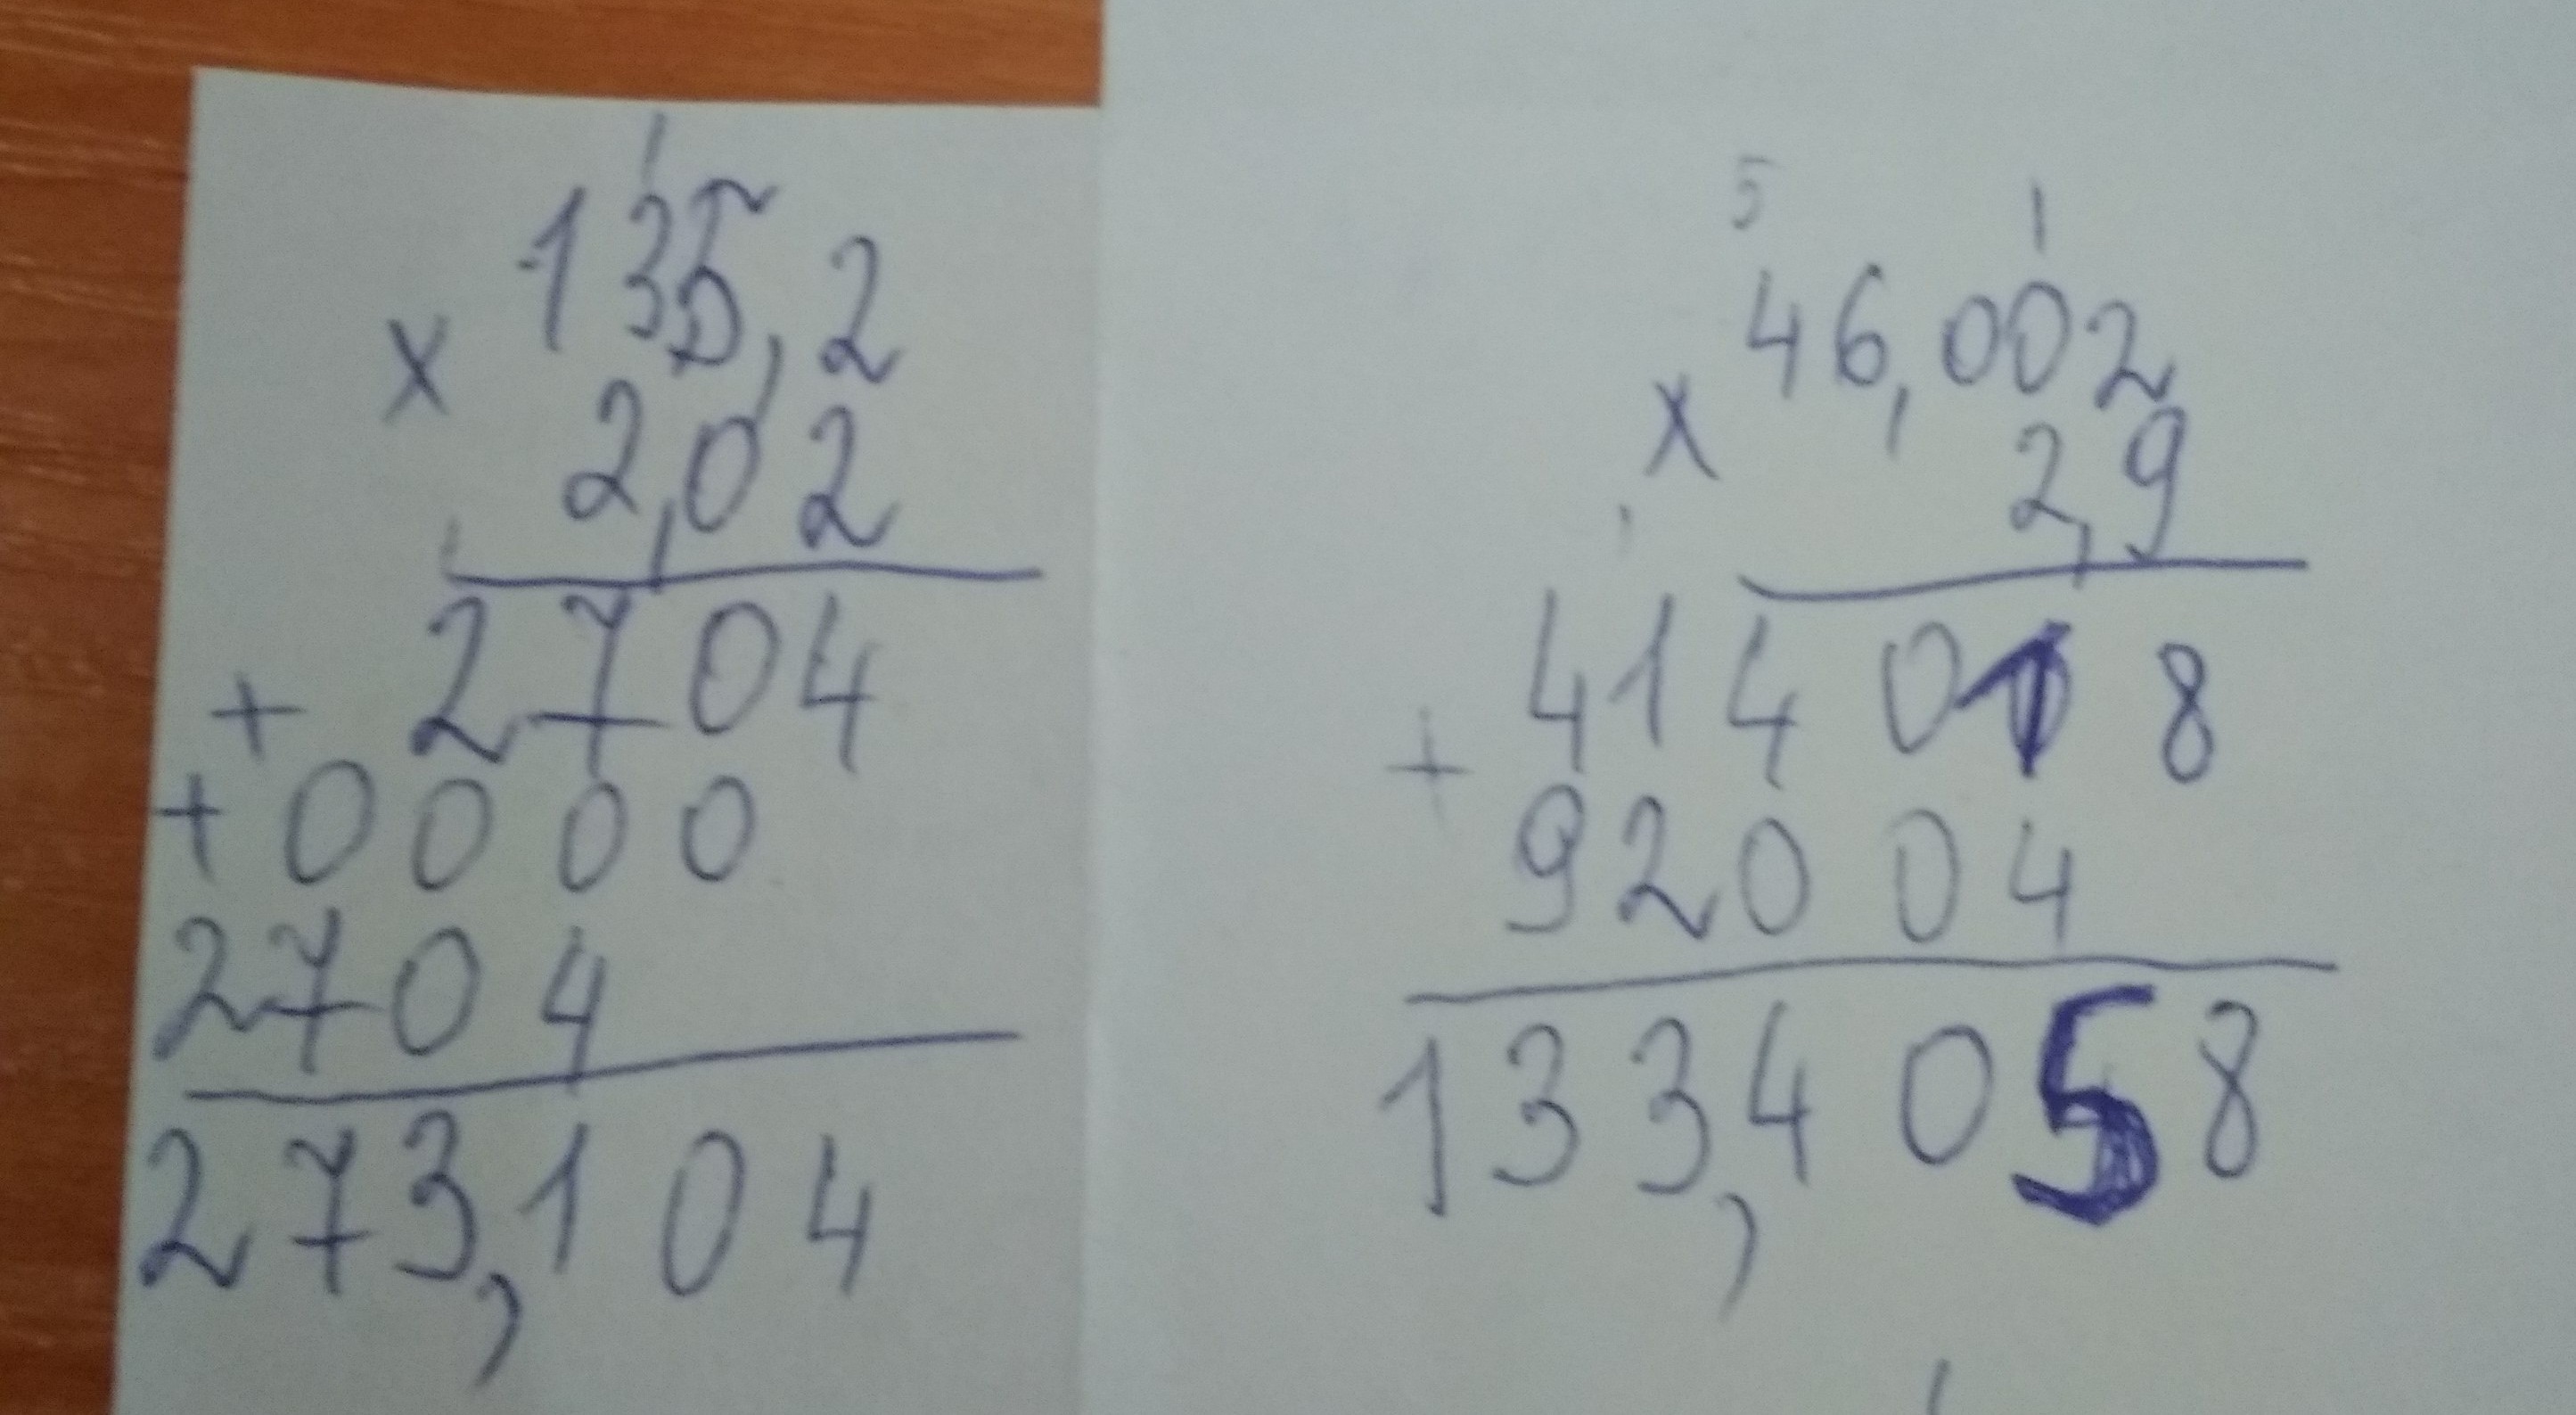 1
135,2
x 2,02
+ 2704
+ 0000
2704
273,104
5 1
46,002
x 2,9
414018
+ 92004
133,4058